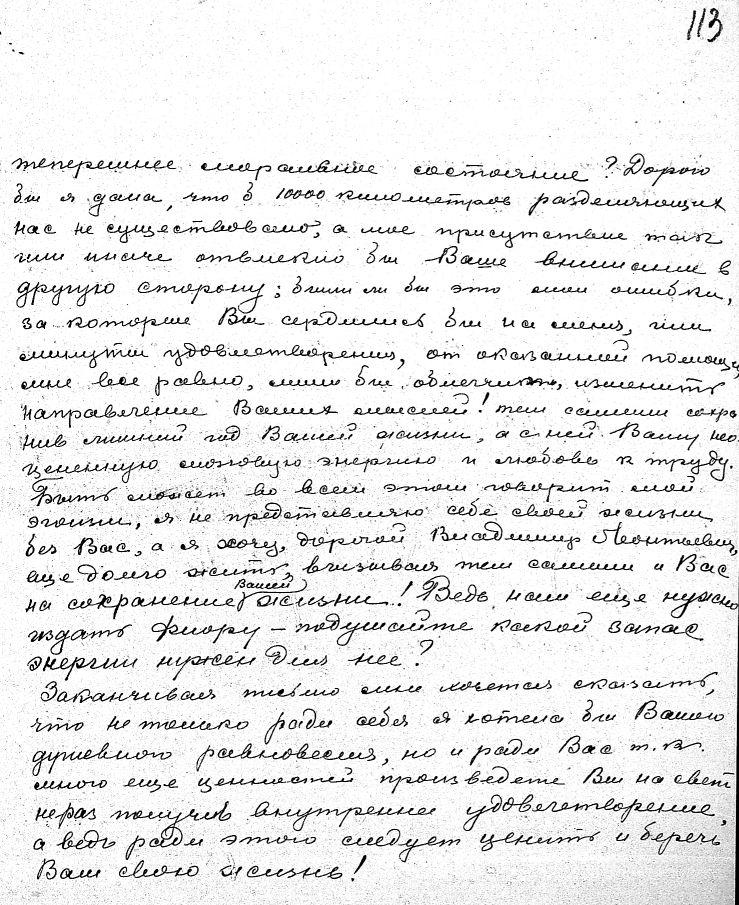 113
теперешнее моральное состояние? Дорого
бы я дала, чтоб 10000 километров разделяющих
нас не существовало, а мое присутствие так
или иначе отвлекло бы Ваше внимание в
другую сторону; были ли бы это мои ошибки,
за которые Вы сердились бы на меня, или
минуты удовлетворения, от оказанной помощи,
мне все равно, лишь бы изменить
направление Ваших мыслей! тем самым сохра
нив лишний год Вашей жизни, а с ней Вашу нео
цененную мозговую энергию и любовь к труду.
Быть может во всем этом говорит мой
эгоизм, я не представляю себе своей жизни
без Вас, а я хочу, дорогой Владимир Леонтьевич,
еще долго жить, вызывая тем самым и Вас
на сохранение Вашей жизни! Ведь нам еще нужно
издать Флору – подумайте какой запас
энергии нужен для нее?
Заканчивая письмо мне хочется сказать,
что не только ради себя я хотела бы Вашего
душевного равновесия, но и ради Вас т.к.
много еще ценностей произведете Вы на свет
нераз получив внутреннее удовлетворение,
а ведь ради этого следует ценить и беречь
Вам свою жизнь!